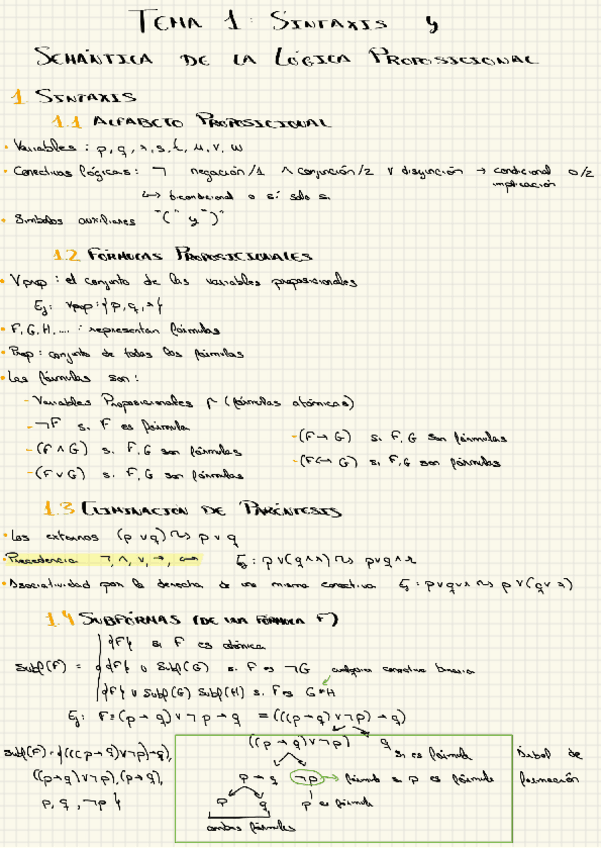 TEMA 1: SINTAXIS Y
SEMÁNTICA DE LA LÓGICA PROPOSICIONAL
1 SINTAXIS
1.1 ALFABETO PROPOSICIONAL
· Variables: p, q, r, s, t, u, v, w
· Conectivas lógicas: ¬ negación/1 ∧ conjunción/2 ∨ disyunción → condicional o/2
implicación
↔ bicondicional o si solo si
· Símbolos auxiliares "(" y ")"
1.2 FÓRMULAS PROPOSICIONALES
· Vprop: el conjunto de las variables proposicionales
Ej: Vprop:{p, q, r}
· F, G, H, ... : representan fórmulas
· Prop: conjunto de todas las fórmulas
· Las fórmulas son:
- Variables Proposicionales (fórmulas atómicas)
- ¬F si F es fórmula
- (F → G) si F, G son fórmulas
- (F ∧ G) si F, G son fórmulas
- (F ↔ G) si F, G son fórmulas
- (F ∨ G) si F, G son fórmulas
1.3 ELIMINACION DE PARÉNTESIS
· Los externos (p ∨ q) ⇝ p ∨ q
· Precedencia ¬, ∧, ∨, →, ↔ Ej: p ∨ (q ∧ r) ⇝ p ∨ q ∧ r
· Asociatividad por la derecha de una misma conectiva Ej: p ∨ q ∨ r ⇝ p ∨ (q ∨ r)
1.4 SUBFÓRMAS (DE UNA FÓRMULA F)
{F} si F es atómica
Subf(F) = {F} ∪ Subf(G) si F es ¬G cualquier conectiva binaria
{F} ∪ Subf(G) Subf(H) si F es G*H
Ej: F = (p → q) ∨ ¬p → q = (((p → q) ∨ ¬p) → q)
((p → q) ∨ ¬p) q
si es fórmula
Subf(F) = {(((p → q) ∨ ¬p) → q),
Árbol de
formación
((p → q) ∨ ¬p), (p → q),
p → q ¬p → fórmula si p es fórmula
p, q, ¬p}
p q p es fórmula
ambas fórmulas